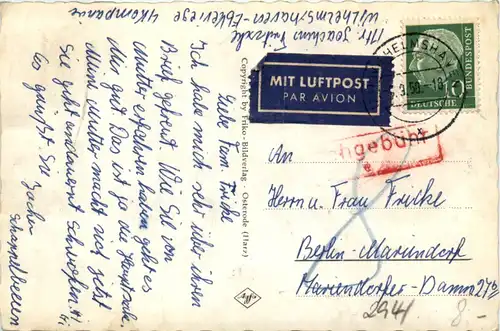 Mtr. Joachim Fritzsche
Wilhelmshaven-Ebkeriege 4Kompanie
Liebe Fam. Fricke
Ich habe mich sehr über ihren
Brief gefreut. Wie Sie von
Mutter erfahren haben geht es
mir gut. Das ist ja die Hauptsache.
Meine Mutter macht sich jetzt
Sie geht
es grüßt Sie
Copyright by Friko-Bildverlag · Osterode (Harz)
MIT LUFTPOST
PAR AVION
WILHELMSHAV
10
DEUTSCHE
BUNDESPOST
hgebühr
An
Herrn u. Frau Fricke
Berlin-Mariendorf
Mariendorfer-Damm 27b
8.-